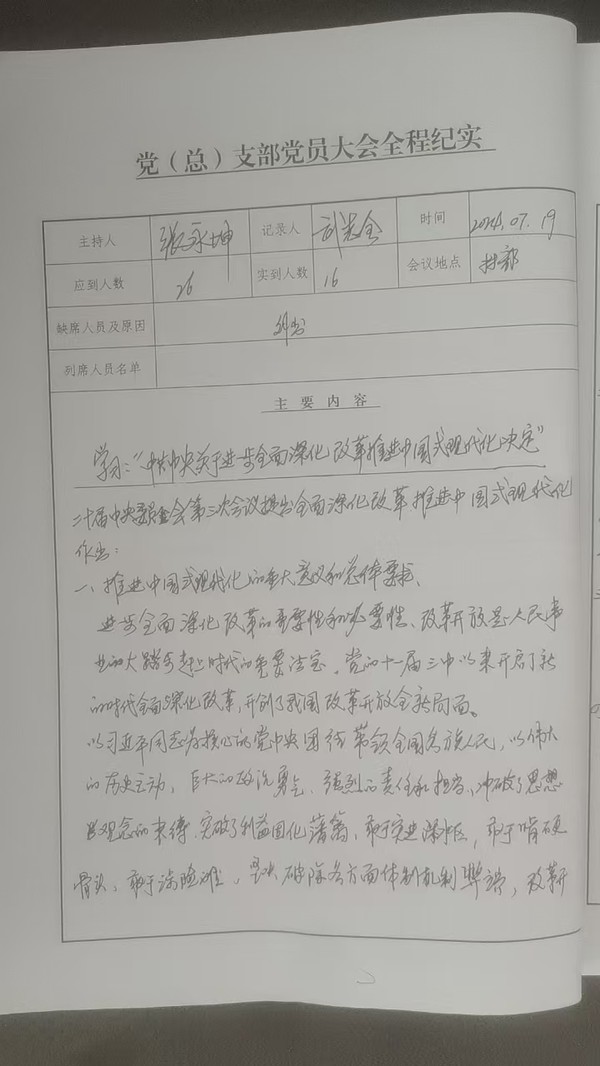 党（总）支部党员大会全程纪实
主持人 张永坤 记录人 时间 2024.07.19
应到人数 26 实到人数 16 会议地点 村部
缺席人员及原因 外出
列席人员名单
主要内容
学习：“中共中央关于进步全面深化改革推进中国式现代化决定”
二十届中央委员会第三次会议提出全面深化改革推进中国式现代化
作出：
一、推进中国式现代化的重大意义和总体要求、
进步全面深化改革的重要性和必要性、改革开放是人民事
业的大踏步赶上时代的重要法宝。党的十一届三中以来开启了新
的时代全面深化改革，开创了我国改革开放全新局面。
以习近平同志为核心的党中央团结带领全国各族人民，以伟大
的历史主动、巨大的政治勇气、强烈的责任和担当、冲破了思想
观念的束缚、突破了利益固化藩篱，敢于突进深水区，敢于啃硬
骨头，敢于涉险难，坚决破除各方面体制机制弊端，改革开